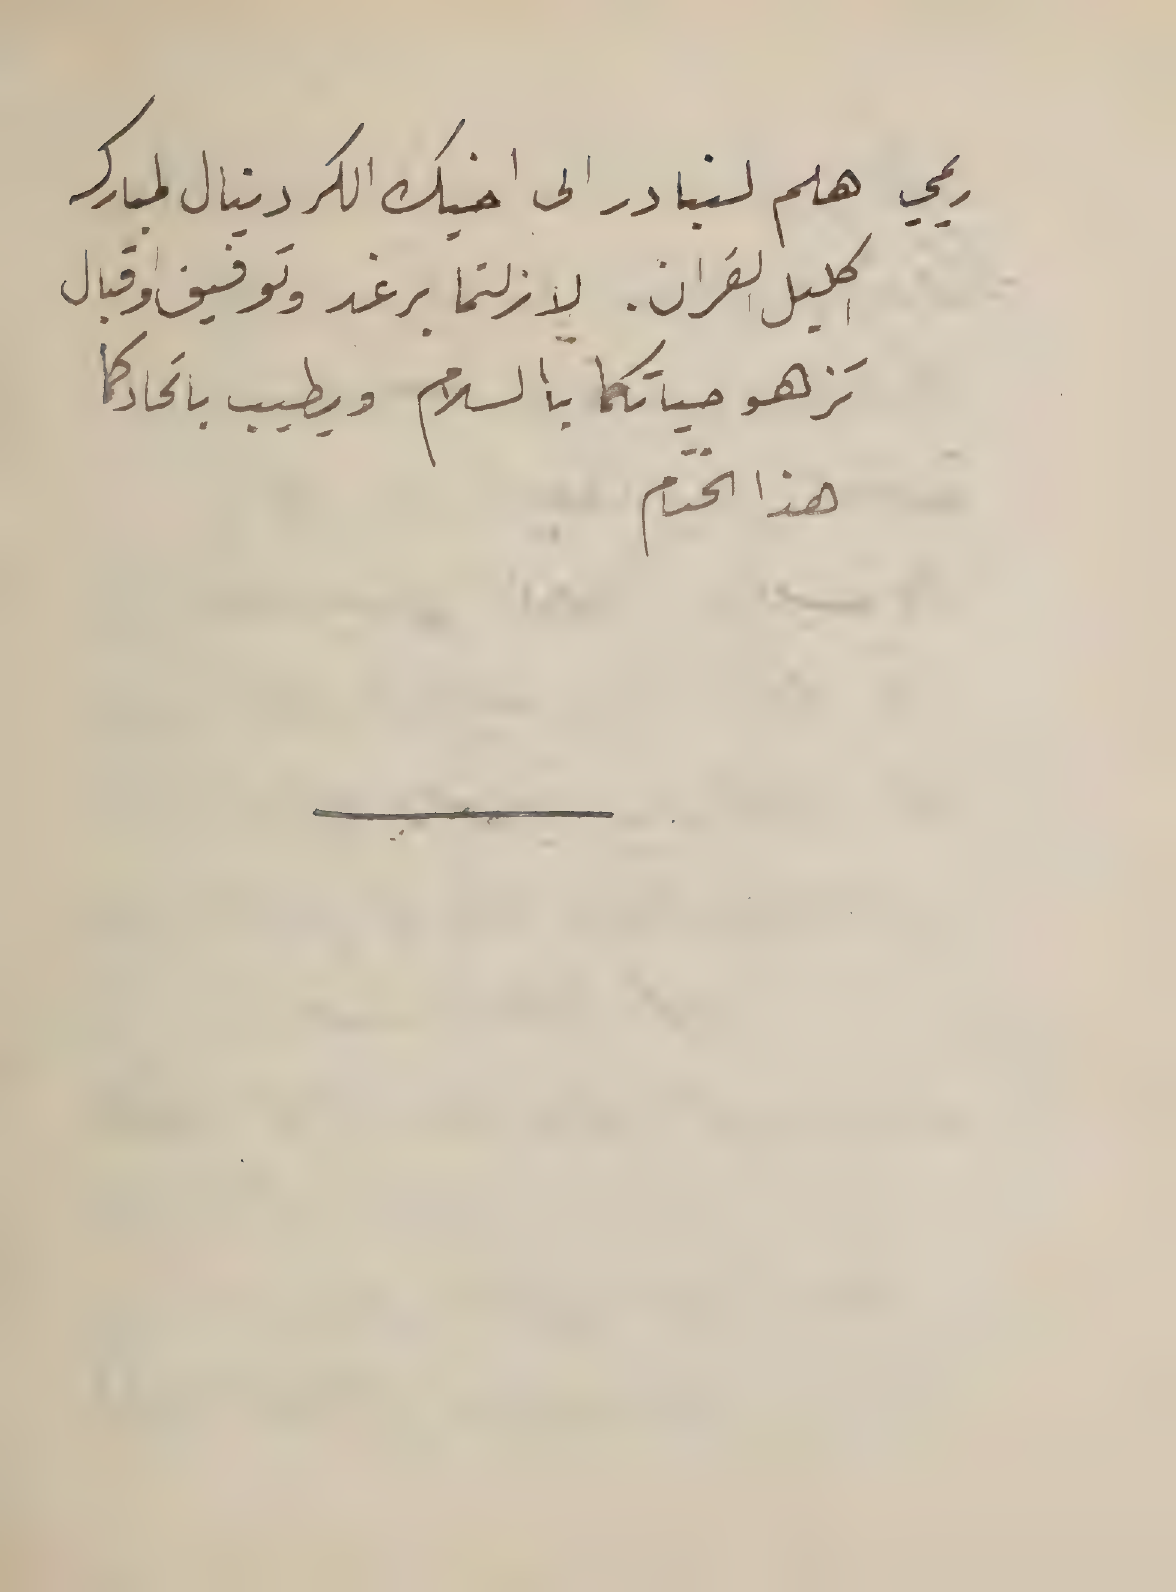 ريمي هلم لنبادر الى اخيك الكردينال لمباركه
اكليل القران . لا زلتما برغد وتوفيق واقبال
تزهو حياتكما بالسلام ويطيب باتحادكما
هذا الختام